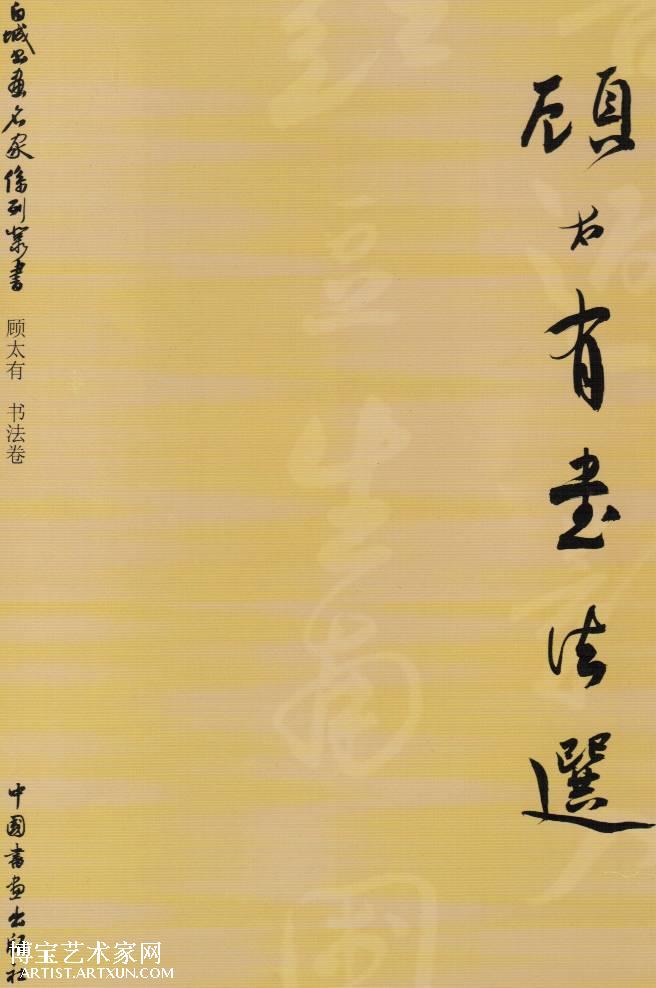 顾太有書法選
白城书画名家係列叢書
顾太有 书法卷
中国書画出版社
博宝艺术家网
ARTIST.ARTXUN.COM